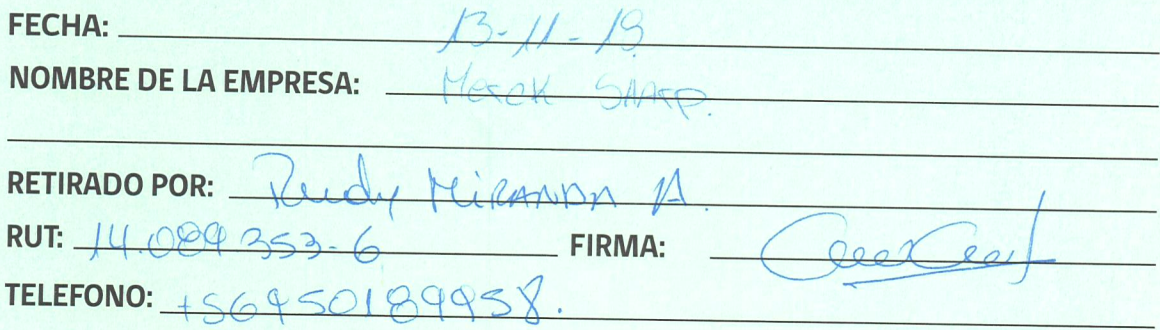 FECHA: 13-11-19
NOMBRE DE LA EMPRESA: Merck SHARP.
RETIRADO POR: Rudy MIRANDA A.
RUT: 14.089.353-6 FIRMA:
TELEFONO: +56950189958.